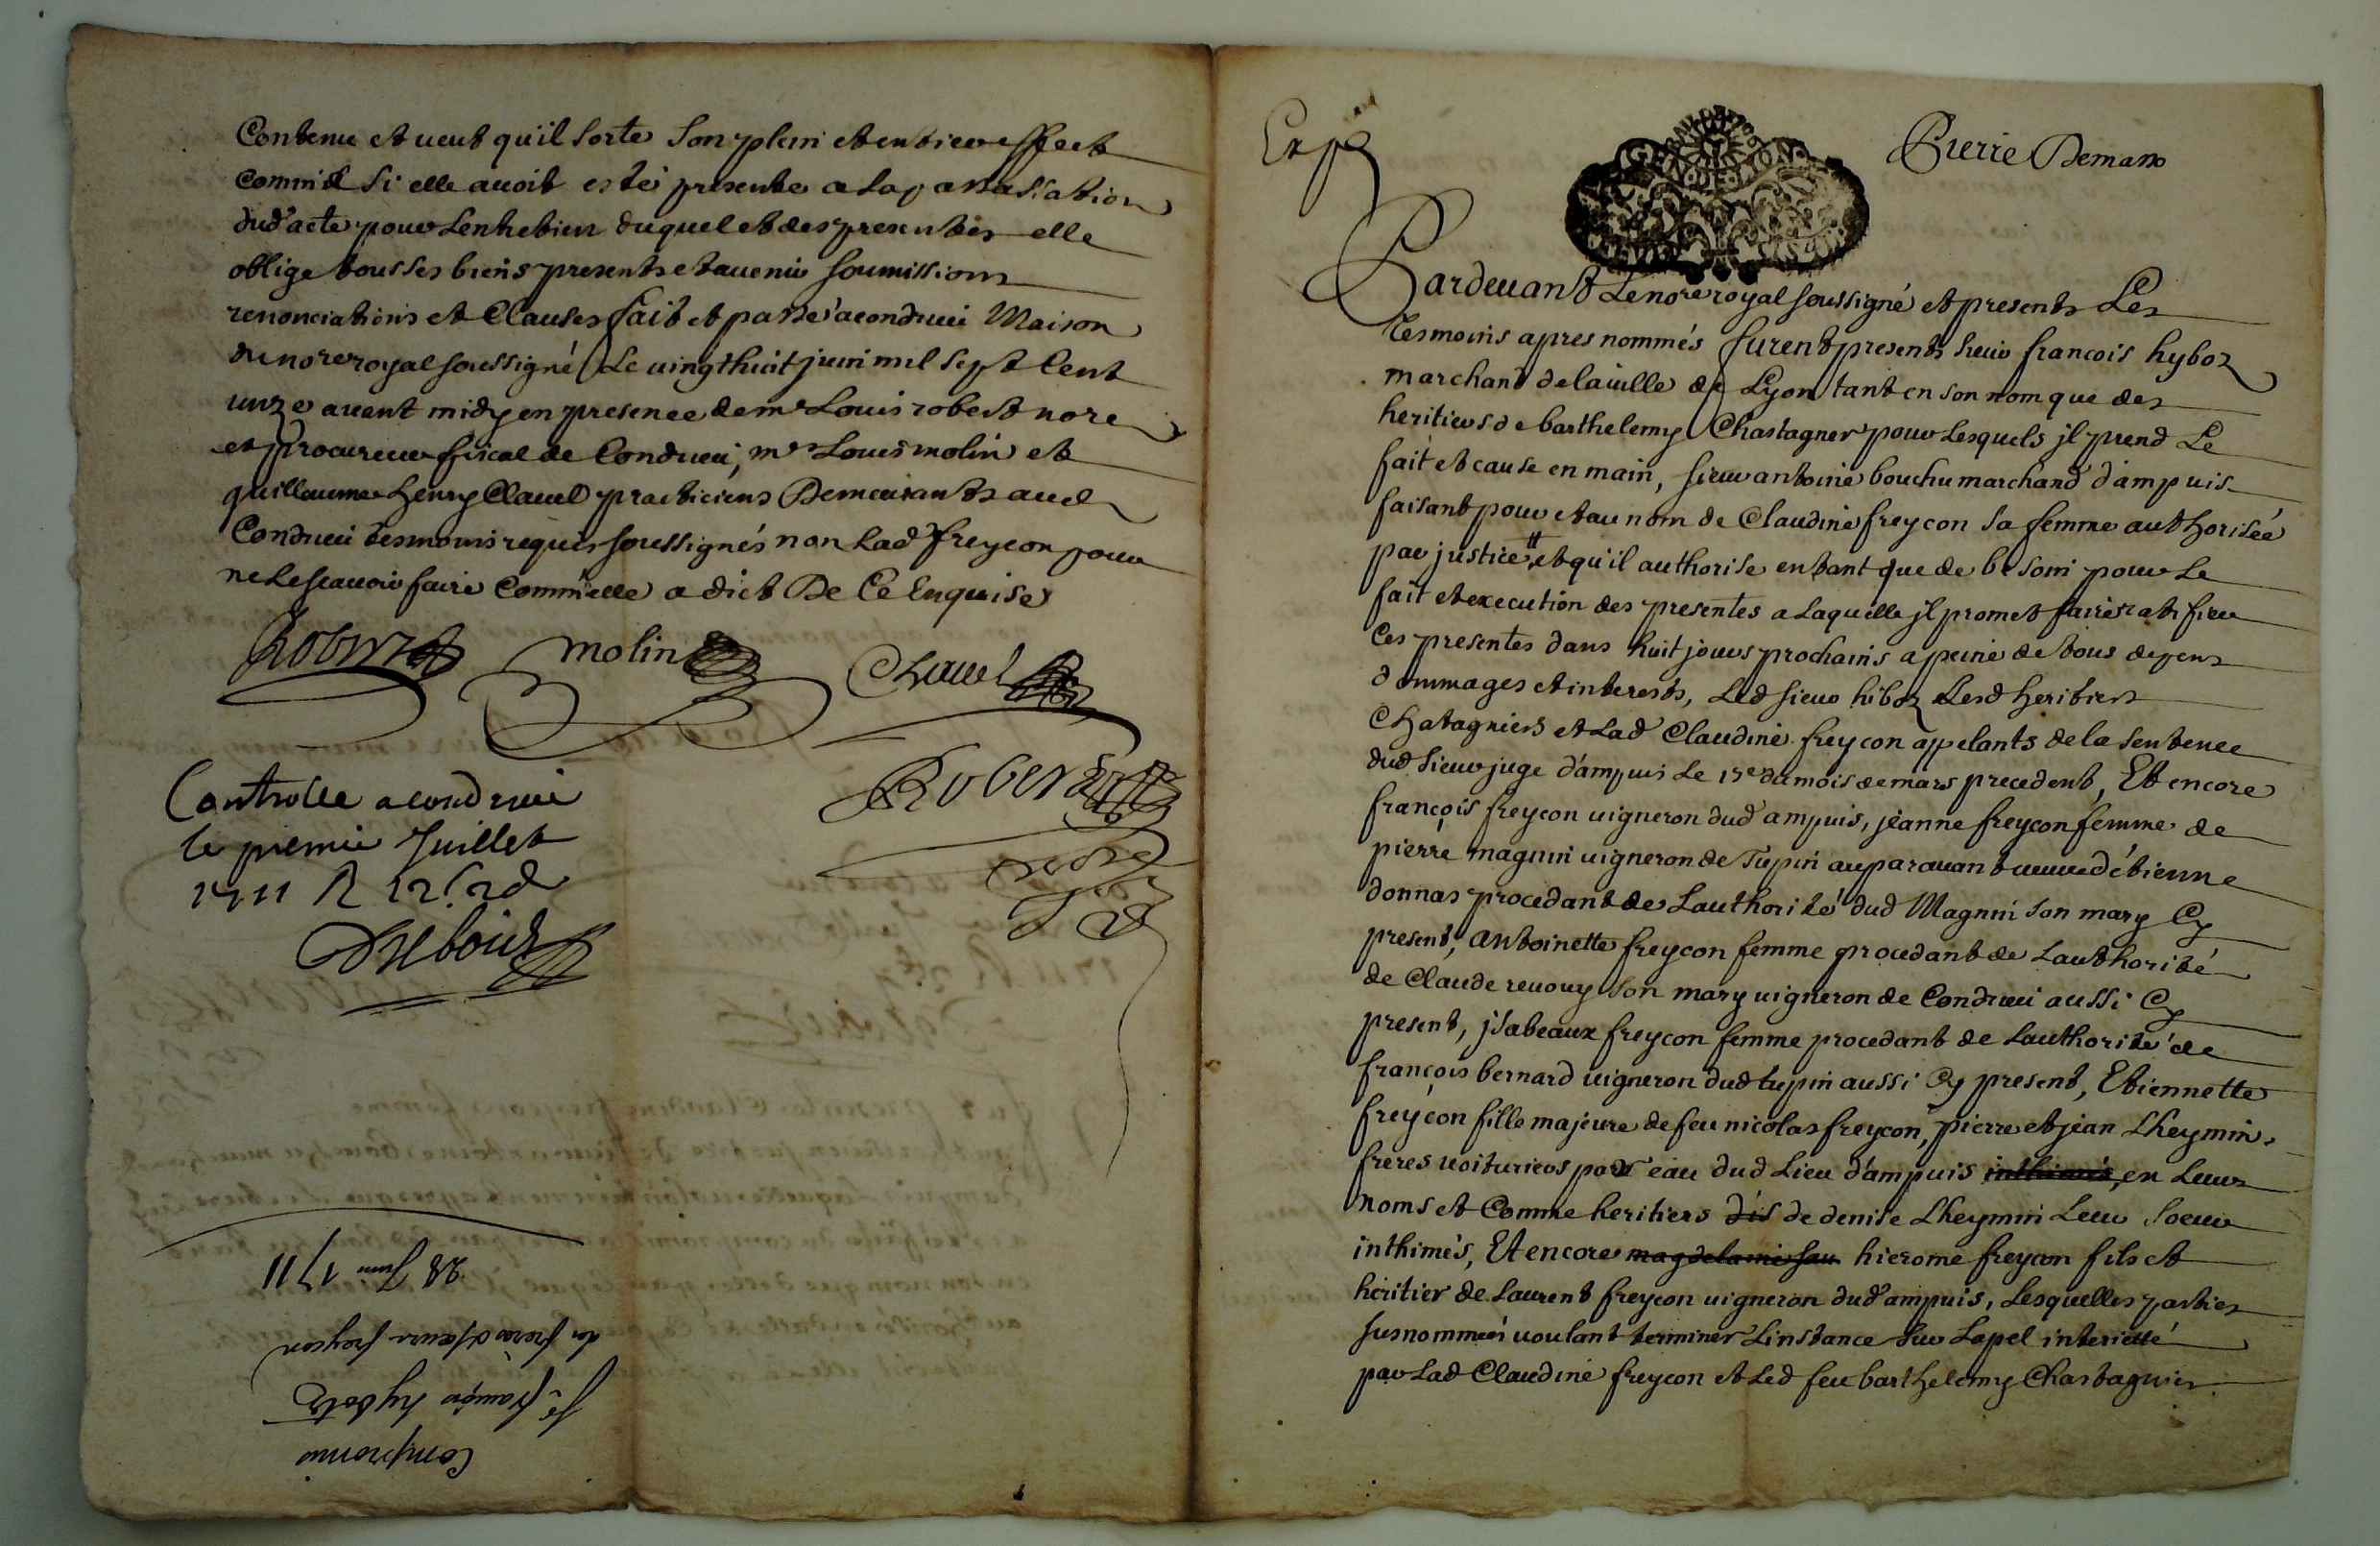 Contenu et ueut qu'il sorte son plein et entier effect
comme si elle auoit esté presente a la passation
dud acte pour lentretien duquel et des presentes elle
oblige tous ses biens presents et auenir soumissions
renonciations et Clauses fait et passé a condrieu Maison
du nore royal soussigné Le uingthuit juin mil sept Cent
unze auant midy en presence de me Louis robert nore
et procureur fiscal de Condrieu, me Louis molin et
guillaume henry Clauel practiciens Demeurants aud
Condrieu tesmoins requis soussignés non Lad freycon pour
ne le scauoir faire comm'elle a dict De Ce Enquise
Robert molin Clauel
Robert
nore
Controlle a condrieu
le premier Juillet
1711 R 12s 2d
Compromis
sr françois hybotz
des freres et soeurs freyçon
28 Juin 1711
Expé
Pierre Demaro
GENERALITE DE LYON
Pardeuant Le nore royal soussigné et presents Les
tesmoins apres nommés furent presents sieur francois hyboz
marchand de la uille de Lyon tant en son nom que des
heritiers de barthelemy Chastagner pour lesquels jl prend Le
fait et cause en main, sieur antoine bouchu marchand d'ampuis
faisant pour et au nom de Claudine freycon sa femme authorisée
par justice # et qu'il authorise en tant que de besoin pour Le
fait et execution des presentes a laquelle jl promet faire ratifier
Ces presentes dans huit jours prochains a peine de tous depens
dommages et interests, Led sieur hiboz Lesd heritiers
Chatagniers et Lad Claudine freycon appelants de la sentence
dud sieur juge d'ampuis Le 17e du mois de mars precedent, Et encore
françois freycon uigneron dud ampuis, jeanne freycon femme de
pierre magnin uigneron de Tupin auparauant ueuue d'étienne
donnas procedant de Lauthorité dud Magnin son mary Cy
present, antoinette freycon femme procedant de Lauthorité
de Claude reuouy son mary uigneron de Condrieu aussi Cy
present, jsabeaux freycon femme procedant de Lauthorité de
françois bernard uigneron dud tupin aussi Cy present, Etiennette
freycon fille majeure de feu nicolas freycon, pierre et jean Lheymin
freres uoituriers par eau dud Lieu d'ampuis inthimés, en Leurs
noms et Comme heritiers dis de denise Lheymin Leur soeur
inthimés, Et encore magdelaine sau hierome freycon fils et
heritier de Laurent freycon uigneron dud'ampuis, Lesquelles parties
susnommées uoulant terminer Linstance sur Lapel interietté
par Lad Claudine freycon et Led feu barthelemy Chastagnier